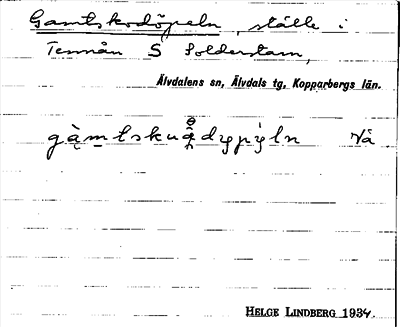 Gamtskodöpeln, ställe i
Tennån S Solderstam,
Älvdalens sn, Älvdals tg, Kopparbergs län.
Vå
HELGE LINDBERG 1934.